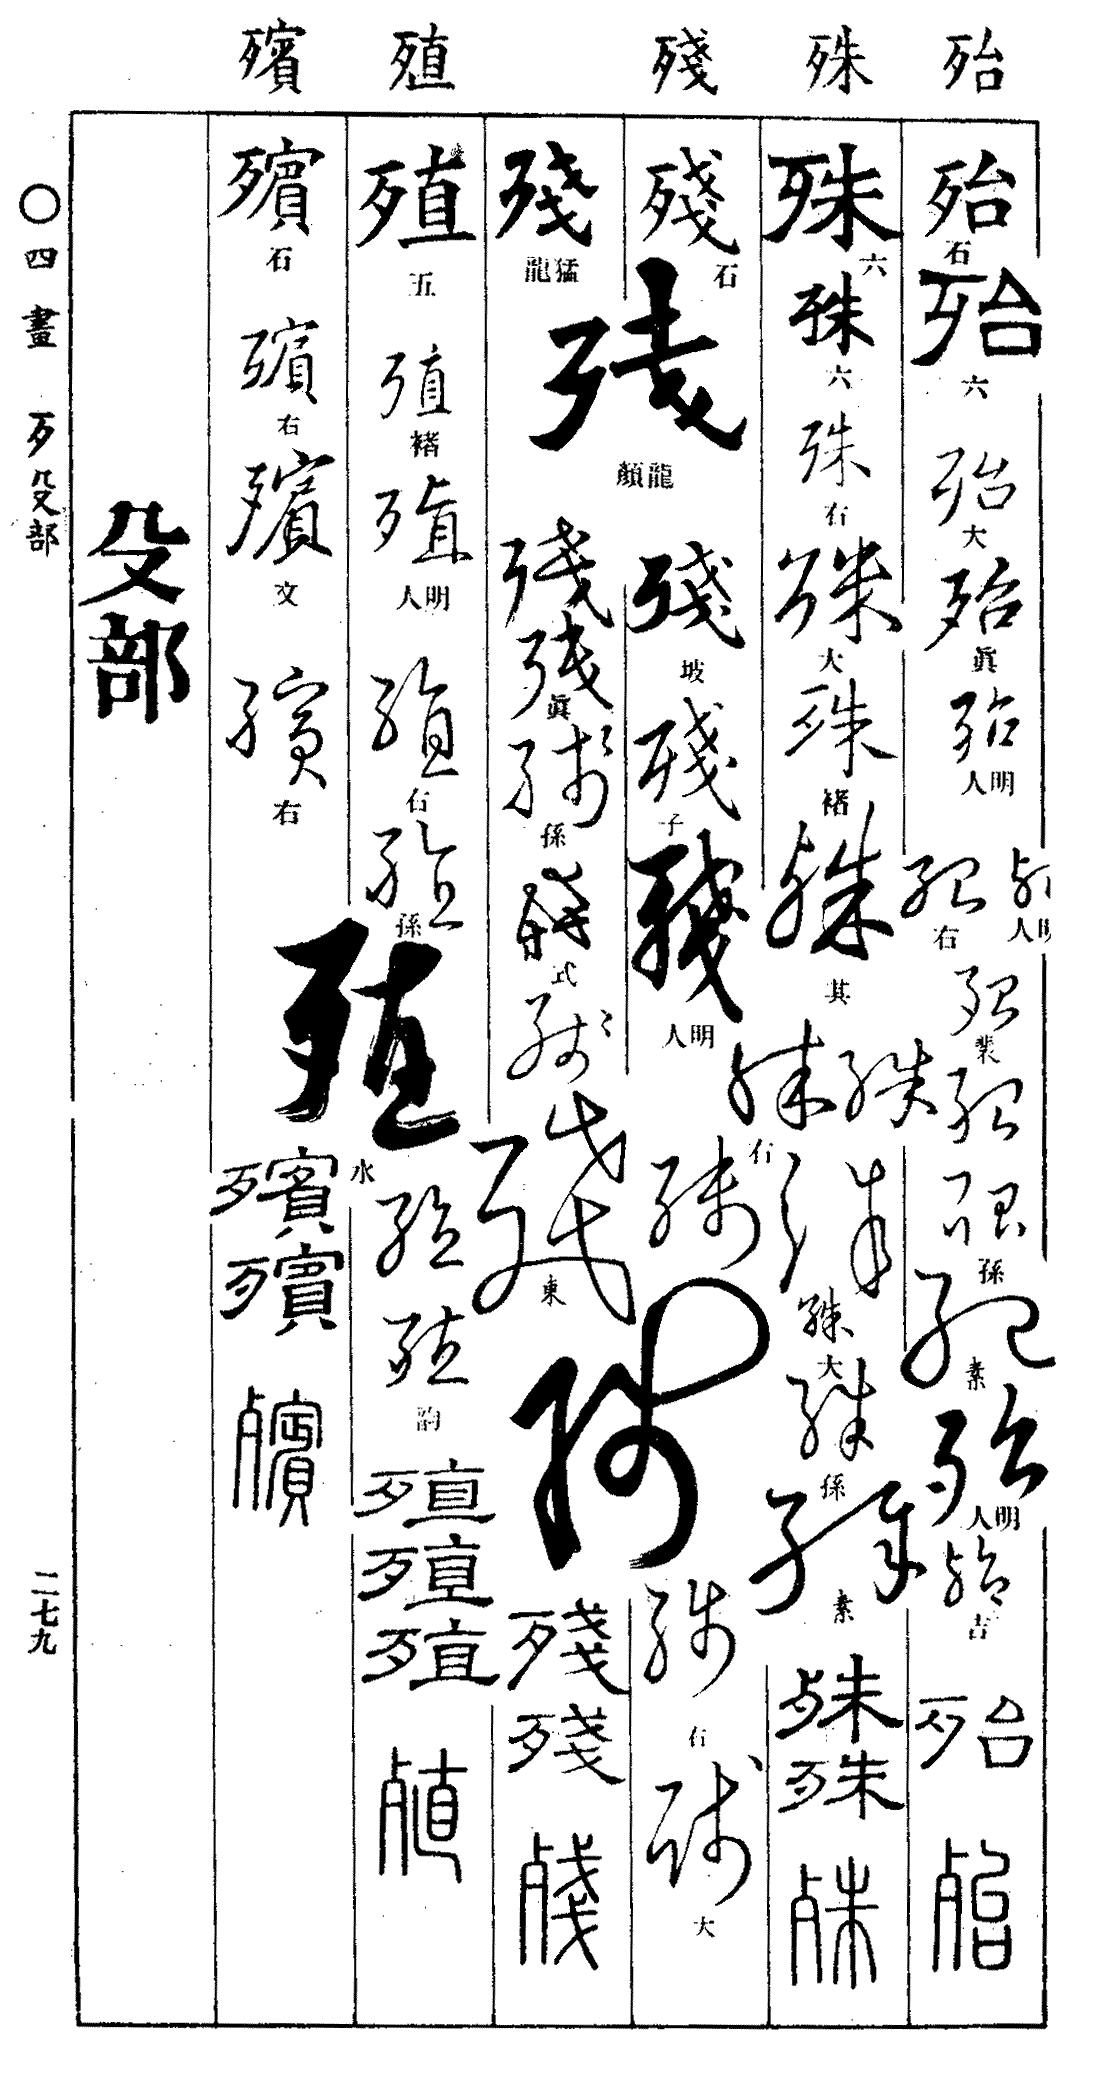 殆
殆
石
殆
六
殆
大
殆
眞
殆
明人
殆
明人
殆
右
殆
裴
殆
殆
孫
殆
素
殆
明人
殆
吉
殆
殆
殊
殊
六
殊
六
殊
右
殊
大
殊
褚
殊
其
殊
殊
右
殊
殊
大
殊
孫
殊
素
殊
殊
殊
殘
殘
石
殘
龍顏
殘
坡
殘
子
殘
明人
殘
殘
殘
右
殘
大
殘
猛龍
殘
殘
眞
殘
孫
殘
式
殘
殘
東
殘
殘
殘
殖
殖
五
殖
褚
殖
明人
殖
右
殖
孫
殖
水
殖
殖
韵
殖
殖
殖
殖
殯
殯
石
殯
右
殯
文
殯
右
殯
殯
殯
殳部
〇四畫 歹殳部
二七九